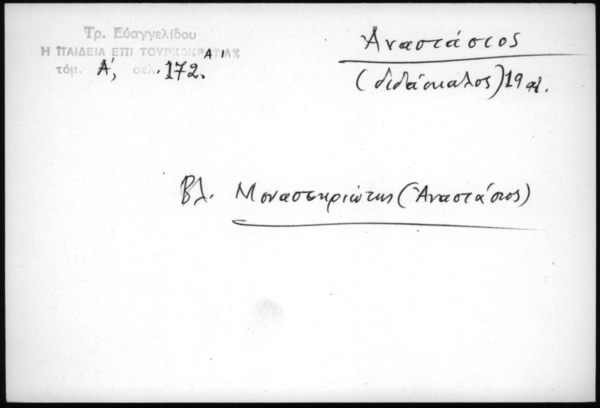 Τρ. Εὐαγγελίδου
Η ΠΑΙΔΕΙΑ ΕΠΙ ΤΟΥΡΚΟΚΡΑΤΙΑΣ
τόμ. Α', σελ. 172.
Ἀναστάσιος
(διδάσκαλος) 19 αἰ.
Βλ. Μοναστηριώτης (Ἀναστάσιος)